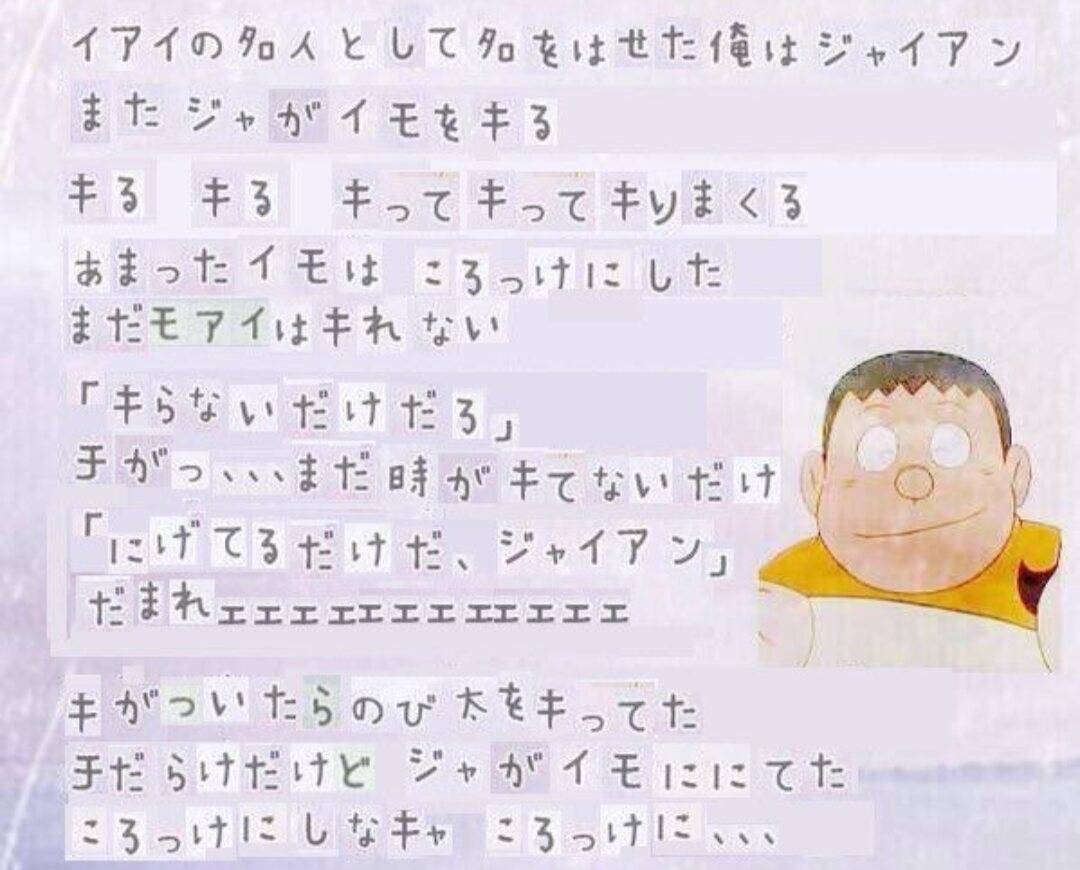 イアイの名人として名をはせた俺はジャイアン
またジャがイモをキる
キる キる キってキってキりまくる
あまったイモは ころっけにした
まだモアイはキれない
「キらないだけだろ」
チがっ、、、まだ時がキてないだけ
「にげてるだけだ、ジャイアン」
だまれェェェェェェェェェェェェ
キがついたらのび太をキってた
チだらけだけど ジャがイモににてた
ころっけにしなキャ ころっけに、、、